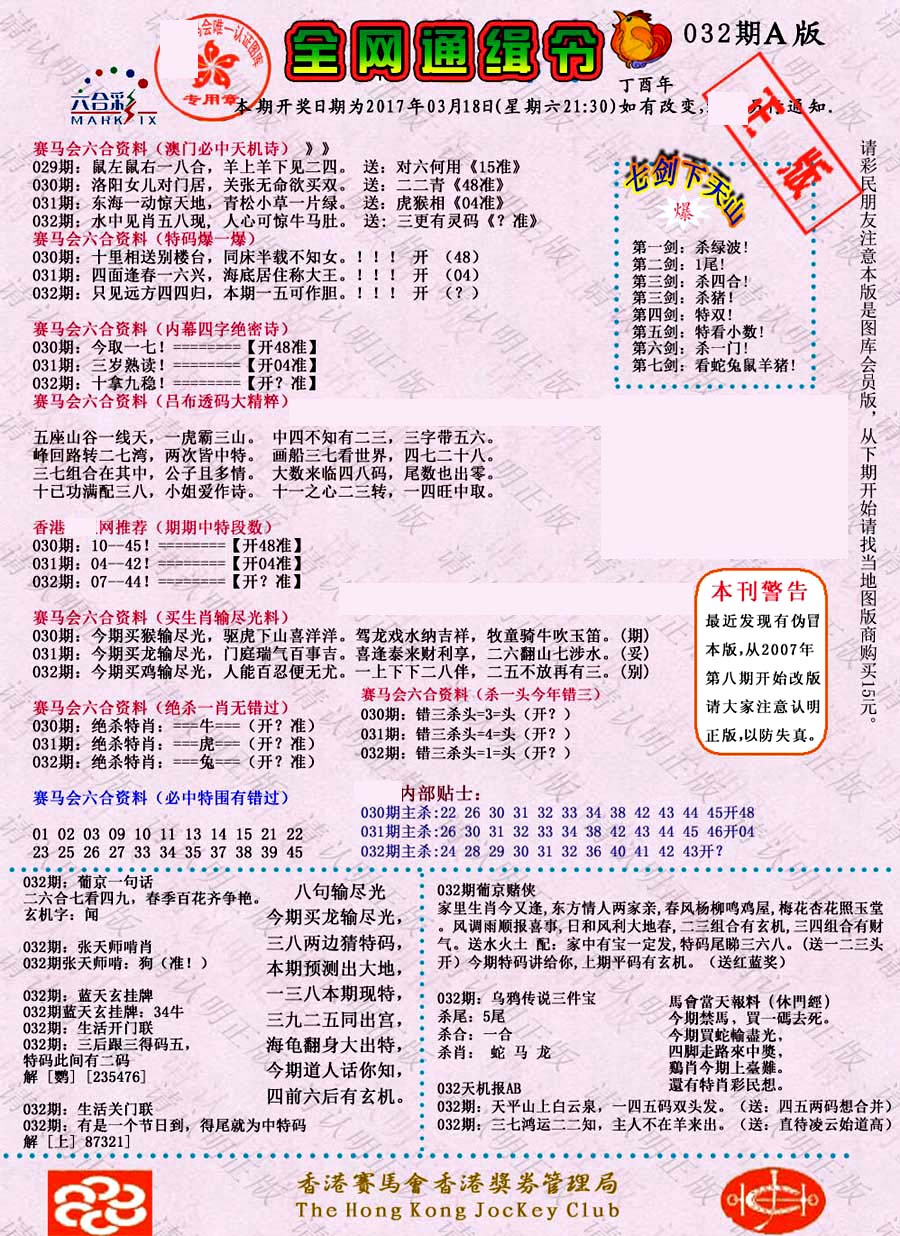 全网通缉令
032期A版
丁酉年
六合彩
MARK SIX
会唯一认证图库
专用章
本期开奖日期为2017年03月18日(星期六21:30)如有改变,
通知.
正版
赛马会六合资料（澳门必中天机诗）》》
029期: 鼠左鼠右一八合, 羊上羊下见二四。 送: 对六何用《15准》
030期: 洛阳女儿对门居, 关张无命欲买双。 送: 二二青《48准》
031期: 东海一动惊天地, 青松小草一片绿。 送: 虎猴相《04准》
032期: 水中见肖五八现, 人心可惊牛马肚。 送: 三更有灵码《？准》
赛马会六合资料（特码爆一爆）
030期: 十里相送别楼台, 同床半载不知女。！！！ 开 （48）
031期: 四面逢春一六兴, 海底居住称大王。！！！ 开 （04）
032期: 只见远方四四归, 本期一五可作胆。！！！ 开 （？）
赛马会六合资料（内幕四字绝密诗）
030期: 今取一七！========【开48准】
031期: 三岁熟读！========【开04准】
032期: 十拿九稳！========【开？准】
赛马会六合资料（吕布透码大精粹）
五座山谷一线天, 一虎霸三山。 中四不知有二三, 三字带五六。
峰回路转二七湾, 两次皆中特。 画船三七看世界, 四七二十八。
三七组合在其中, 公子且多情。 大数来临四八码, 尾数也出零。
十已功满配三八, 小姐爱作诗。 十一之心二三转, 一四旺中取。
香港 网推荐（期期中特段数）
030期: 10--45！========【开48准】
031期: 04--42！========【开04准】
032期: 07--44！========【开？准】
赛马会六合资料（买生肖输尽光料）
030期: 今期买猴输尽光, 驱虎下山喜洋洋。驾龙戏水纳吉祥, 牧童骑牛吹玉笛。(期)
031期: 今期买龙输尽光, 门庭瑞气百事吉。喜逢泰来财利享, 二六翻山七涉水。(妥)
032期: 今期买鸡输尽光, 人能百忍便无尤。一上下下二八伴, 二五不放再有三。(别)
赛马会六合资料（绝杀一肖无错过）
030期: 绝杀特肖: ===牛===（开？准）
031期: 绝杀特肖: ===虎===（开？准）
032期: 绝杀特肖: ===兔===（开？准）
赛马会六合资料（杀一头今年错三）
030期: 错三杀头=3=头（开？）
031期: 错三杀头=4=头（开？）
032期: 错三杀头=1=头（开？）
赛马会六合资料（必中特围有错过）
01 02 03 09 10 11 13 14 15 21 22
23 25 26 27 33 34 35 37 38 39 45
内部贴士:
030期主杀:22 26 30 31 32 33 34 38 42 43 44 45开48
031期主杀:26 30 31 32 33 34 38 42 43 44 45 46开04
032期主杀:24 28 29 30 31 32 36 40 41 42 43开？
七剑下天山
爆
第一剑: 杀绿波！
第二剑: 1尾！
第三剑: 杀四合！
第三剑: 杀猪！
第四剑: 特双！
第五剑: 特看小数！
第六剑: 杀一门！
第七剑: 看蛇兔鼠羊猪！
请彩民朋友注意本版是图库会员版，从下期开始请找当地图版商购买15元。
本刊警告
最近发现有伪冒
本版,从2007年
第八期开始改版
请大家注意认明
正版,以防失真。
032期: 葡京一句话
二六合七看四九, 春季百花齐争艳。
玄机字: 闻
032期: 张天师啃肖
032期张天师啃: 狗（准！）
032期: 蓝天玄挂牌
032期蓝天玄挂牌: 34牛
032期: 生活开门联
032期: 三后跟三得码五,
特码此间有二码
解［鹦］[235476]
032期: 生活关门联
032期: 有是一个节日到, 得尾就为中特码
解［上］87321]
八句输尽光
今期买龙输尽光,
三八两边猜特码,
本期预测出大地,
一三八本期现特,
三九二五同出宫,
海龟翻身大出特,
今期道人话你知,
四前六后有玄机。
032期葡京赌侠
家里生肖今又逢, 东方情人两家亲, 春风杨柳鸣鸡屋, 梅花杏花照玉堂
。风调雨顺报喜事, 日和风利大地春, 二三组合有玄机, 三四组合有财
气。送水火土 配: 家中有宝一定发, 特码尾睇三六八。(送一二三头
开）今期特码讲给你, 上期平码有玄机。（送红蓝奖）
032期: 乌鸦传说三件宝
杀尾: 5尾
杀合: 一合
杀肖: 蛇 马 龙
馬會當天報料（休門經）
今期禁馬, 買一碼去死。
今期買蛇輸盡光,
四脚走路來中獎,
鷄肖今期上臺難。
還有特肖彩民想。
032天机报AB
032期: 天平山上白云泉, 一四五码双头发。（送: 四五两码想合并）
032期: 三七鸿运二二知, 主人不在羊来出。（送: 直待凌云始道高）
香港賽馬會香港獎券管理局
The Hong Kong JocKey Club